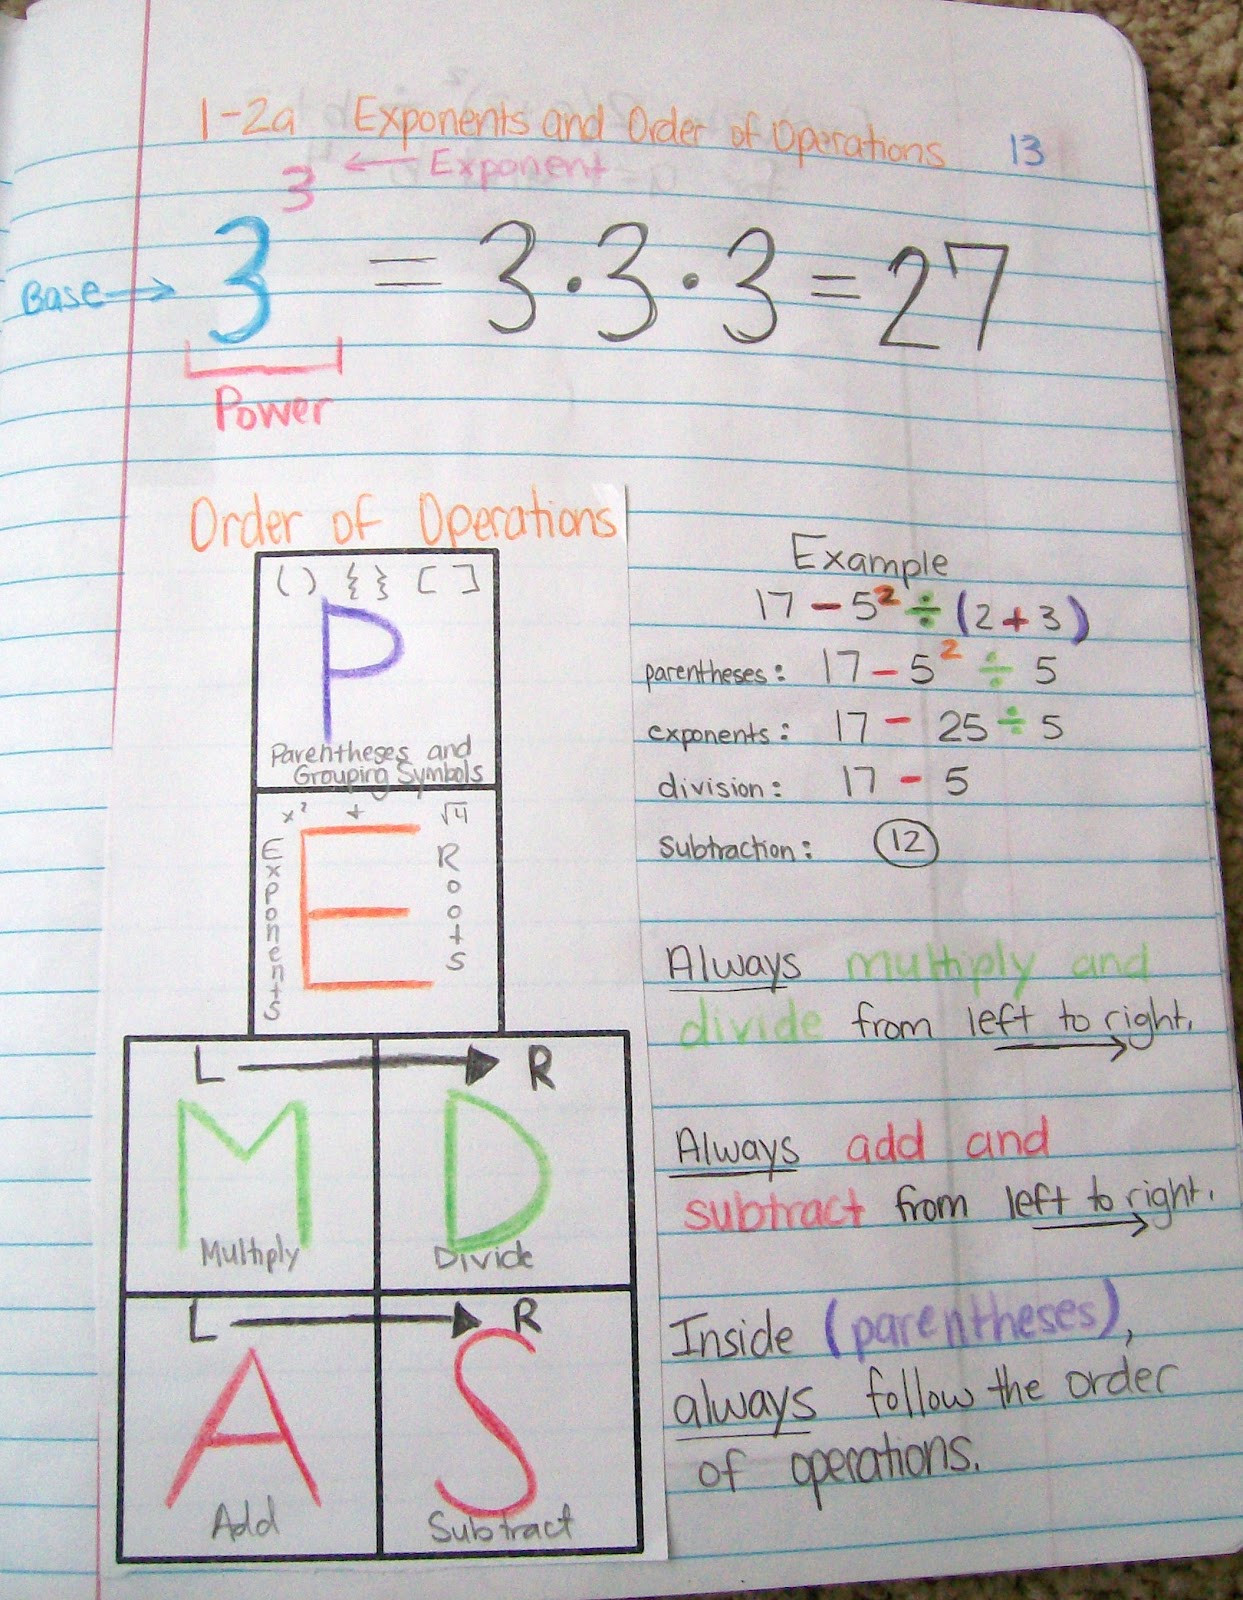 1-2a Exponents and Order of Operations 13
3 ← Exponent
Base → 3 = 3·3·3 = 27
Power
Order of Operations
( ) { } [ ]
P
Parentheses and
Grouping Symbols
x² + √4
E
Exponents
Roots
L → R
M D
Multiply Divide
L → R
A S
Add Subtract
Example
17 - 5² ÷ (2 + 3)
parentheses: 17 - 5² ÷ 5
exponents: 17 - 25 ÷ 5
division: 17 - 5
subtraction: 12
Always multiply and
divide from left to right.
Always add and
subtract from left to right.
Inside (parentheses),
always follow the order
of operations.